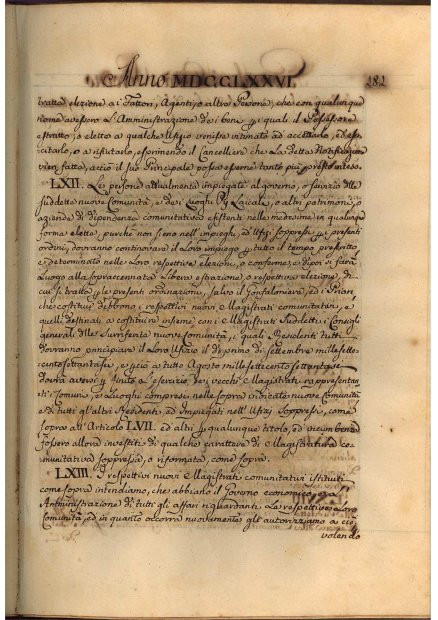 Anno MDCCLXXVI. 282
tratta elezione a i Fattori, Agenti, o altre Persone, che con qualunque
nome avessero l'Amministrazione de i beni di quali il Possessore
estratto, o eletto a qualche Ufizio venisse intimato ad accettarlo, ed eser-
citarlo, o a rifiutarlo, esprimendo il Cancelliere che la detta Notificazione
vien fatta, acciò il suo Principale possa esserne tanto più presto inteso.
LXII. Le persone attualmente impiegate al governo, o servizio delle
suddette nuove Comunità, e de i Luoghi Pij Laicali, o altri patrimonj, o
aziende di dipendenza comunitativa esistenti nelle medesime in qualunque
forma elette, purchè non sieno nell'impieghi, ed Ufizj soppressi per i presenti
ordini, dovranno continovare il loro impiego per tutto il tempo prescritto
e determinato nelle loro respettive elezioni, o conferme, e dipoi si farà
luogo alla sopraccennata libera estrazione, o respettive elezione, di
cui si tratta per le presenti ordinazioni, salvo il Gonfaloniere, ed i Priori
che costituir debbono i respettivi nuovi Magistrati comunitativi, e
quelli destinati a costituire insieme con i Magistrati suddetti i Consigli
generali delle surriferite nuove Comunità, i quali Residenti tutti
dovranno principiare il loro Ufizio il dì primo di settembre mille sette-
cento settantasei, e perciò a tutto Agosto mille settecento settantasei
dovrà aversi per finito l'esercizio de i vecchi Magistrati rappresentan-
ti i Comuni, e Luoghi compresi nelle sopra indicate nuove Comunità
e di tutti gl'altri Residenti, ed impiegati nell'Ufizj soppressi, come
sopra all'Articolo LVII. ed altri per qualunque titolo, ed incumbenza
fossero allora investiti di qualche carattere di Magistratura co-
munitativa soppressa, o riformata, come sopra.
LXIII. I respettivi nuovi Magistrati comunitativi istituiti
come sopra intendiamo, che abbiano il Governo economico, e la
Amministrazione di tutti gli affari riguardanti le respettive loro
Comunità, ed in quanto occorra nuovamente gli autorizziamo a ciò
volendo